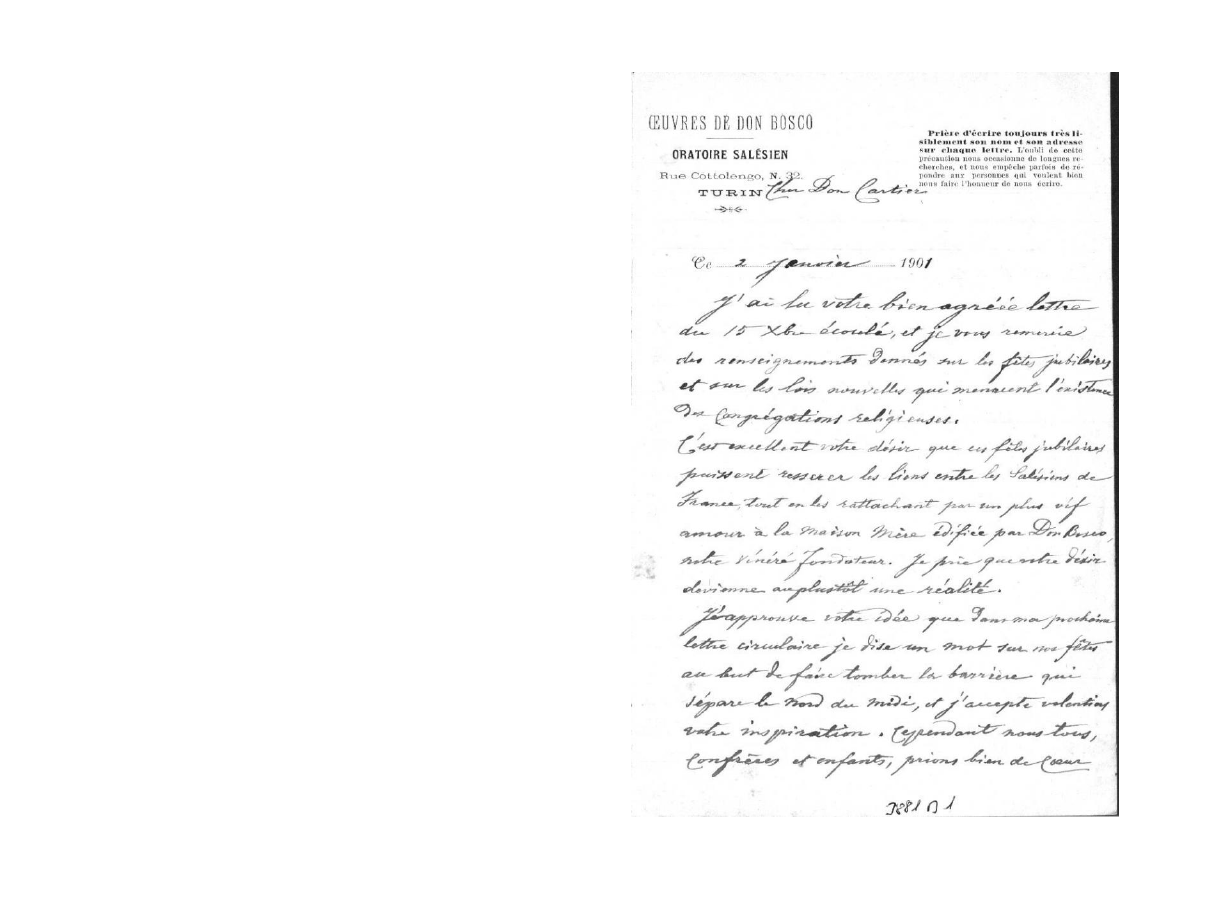 ŒUVRES DE DON BOSCO
ORATOIRE SALÉSIEN
Rue Cottolengo, N. 32.
TURIN
Prière d'écrire toujours très li-
siblement son nom et son adresse
sur chaque lettre. L'oubli de cette
précaution nous occasionne de longues re-
cherches, et nous empêche parfois de ré-
pondre aux personnes qui veulent bien
nous faire l'honneur de nous écrire.
Cher Don Cartier
Ce 2 Janvier 1901
J'ai lu votre bien agréée lettre
du 15 Xbre écoulé, et je vous remercie
des renseignements donnés sur les fêtes jubilaires
et sur les lois nouvelles qui menacent l'existence
des Congrégations religieuses.
C'est excellent votre désir que ces fêtes jubilaires
puissent resserer les liens entre les Salésiens de
France, tout en les rattachant par un plus vif
amour à la Maison Mère édifiée par Don Bosco,
notre Vénéré fondateur. Je prie que votre désir
devienne au plustôt une réalité.
J'éapprouve votre idée que dans ma prochaine
lettre circulaire je dise un mot sur nos fêtes
au but de faire tomber la barrière qui
sépare le Nord du Midi, et j'accepte volontiers
votre inspiration. Cependant nous tous,
Confrères et enfants, prions bien de Cœur
3881 B 1